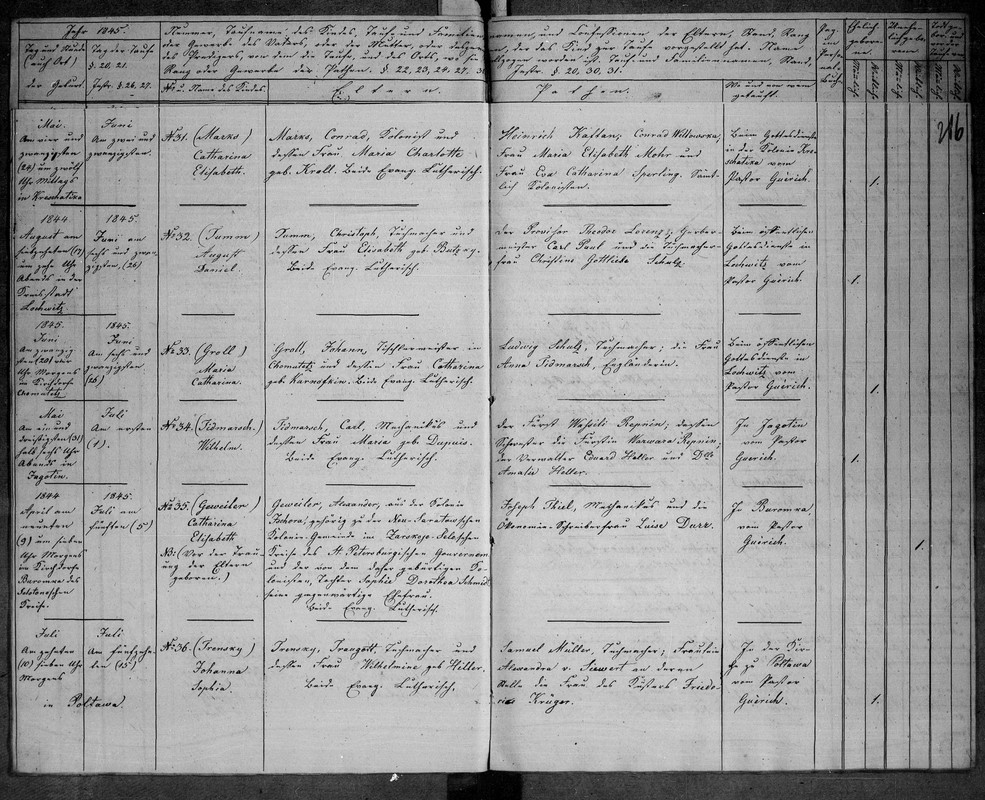 Jahr 1845.
Tag und Stunde
(auch Ort)
der Geburt.
Tag der Taufe
§. 20, 21.
Instr. §. 26. 27.
Nummer, Taufname des Kindes, Tauf- und Familien
namen, und Confessionen der Eltern, Stand, Rang
oder Gewerbe des Vaters, oder der Mutter, oder
der, die das Kind zur Taufe vorgestellt hat. Name
des Predigers, von dem die Taufe, und des Orts, wo sie
vollzogen worden ist. Tauf- und Familiennamen, Stand,
Rang oder Gewerbe der Pathen. §. 22, 23, 24. 27. 30
Instr. §. 20, 30, 31.
Pag.
im
Personal-
Buch.
Ehelich
geboren
Unehe-
lich geboren
Männlich
Weiblich
Männlich
Weiblich
Männlich
Weiblich
No. u. Name des Kindes.
Eltern.
Pathen.
Wo und von wem
getauft.
216
Mai.
Am vier und
zwanzigsten
(24) um zwölf
Uhr Mittags
in Kreschatika
Juni
Am zwei und
zwanzigsten.
No 31. (Marks)
Catharina
Elisabeth.
Marks, Conrad, Kolonist und
dessen Frau Maria Charlotte
geb. Kroll. Beide Evang. Lutherisch.
Heinrich Kaftan; Conrad Willowska;
Frau Maria Elisabeth Mohr und
Frau Eva Catharina Sperling. Sämt-
lich Kolonisten.
Beim Gottesdienste
in der Kolonie Kre-
schatika vom
Pastor Guérich.
1.
1844
August am
siebzehnten (17)
um zehn Uhr
Abends in der
Kreisstadt
Lochwitz
1845
Juni am
sechs und zwan-
zigsten, (26)
No 32. (Tumm)
August
Daniel.
Tumm, Christoph, Tuchmacher und
dessen Frau Elisabeth geb. Butzky.
Beide Evang. Lutherisch.
Der Provisor Theodor Lorenz; Gerber-
meister Carl Paul und die Tuchmacher-
frau Christine Gottlieba Schulz
Beim öffentlichen
Gottesdienste in
Lochwitz vom
Pastor Guérich.
1.
1845.
Juni
Am zwanzig
sten (20) vier
Uhr Morgens
im Kirchdorfe
Chomutetz
1845.
Juni
Am sechs und
zwanzigsten
(26)
No 33. (Groll)
Maria
Catharina.
Groll, Johann, Tischlermeister in
Chomutetz und dessen Frau Catharina
geb. Karnofkin. Beide Evang. Lutherisch.
Ludwig Schulz, Tuchmacher; die Frau
Anna Tidmarsch, Engländerin.
Beim öffentlichen
Gottesdienste in
Lochwitz vom
Pastor Guérich.
1.
Mai
Am ein und
dreißigsten (31)
halb sechs Uhr
Abends in
Jagotin.
Juli
Am ersten
(1).
No 34. (Tidmarsch.)
Wilhelm.
Tidmarsch, Carl, Mechanikus und
dessen Frau Maria geb. Dupuis.
Beide Evang. Lutherisch.
Der Fürst Wassili Repnin; dessen
Schwester die Fürstin Warwara Repnin;
der Verwalter Eduard Heller und Dlle
Amalie Heller.
In Jagotin
vom Pastor
Guérich.
1.
1844
April am
neunten
(9) um sieben
Uhr Morgens
im Kirchdorfe
Baromka des
Solotonoschen
Kreises.
1845.
Juli am
fünften (5)
No 35. (Geweiler)
Catharina
Elisabeth
NB: (Vor der Trau-
ung der Eltern
geboren.)
Geweiler, Alexander, aus der Kolonie
Ischora, gehörig zu der Neu-Saratowschen
Kolonie-Gemeinde im Zarskoje-Seloschen
Kreise des St. Petersburgischen Gouvernem.
und der von dem daher gebürtigen Ko-
lonisten, Tochter Sophie Dorothea Schmid
seine gegenwärtige Ehefrau.
Beide Evang. Lutherisch.
Joseph Thiel, Mechanikus und die
Ökonomie-Schreiberfrau Luise Durr.
In Baromka,
vom Pastor
Guérich.
1.
Juli
Am zehnten
(10) sieben Uhr
Morgens
in Poltawa.
Juli
Am fünfzehn-
ten (15)
No 36. (Trensky)
Johanna
Sophia.
Trensky, Traugott, Tuchmacher und
dessen Frau Wilhelmine geb. Hiller.
Beide Evang. Lutherisch.
Samuel Müller, Tuchmacher; Fräulein
Alexandra v. Siewert an deren
Stelle die Frau des Küsters Friede-
rike Krüger.
In der Kir-
che zu Poltawa
vom Pastor
Guérich.
1.